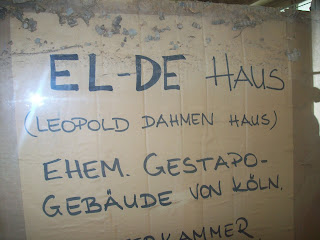 EL-DE HAUS
(LEOPOLD DAHMEN HAUS)
EHEM. GESTAPO-
GEBÄUDE VON KÖLN.